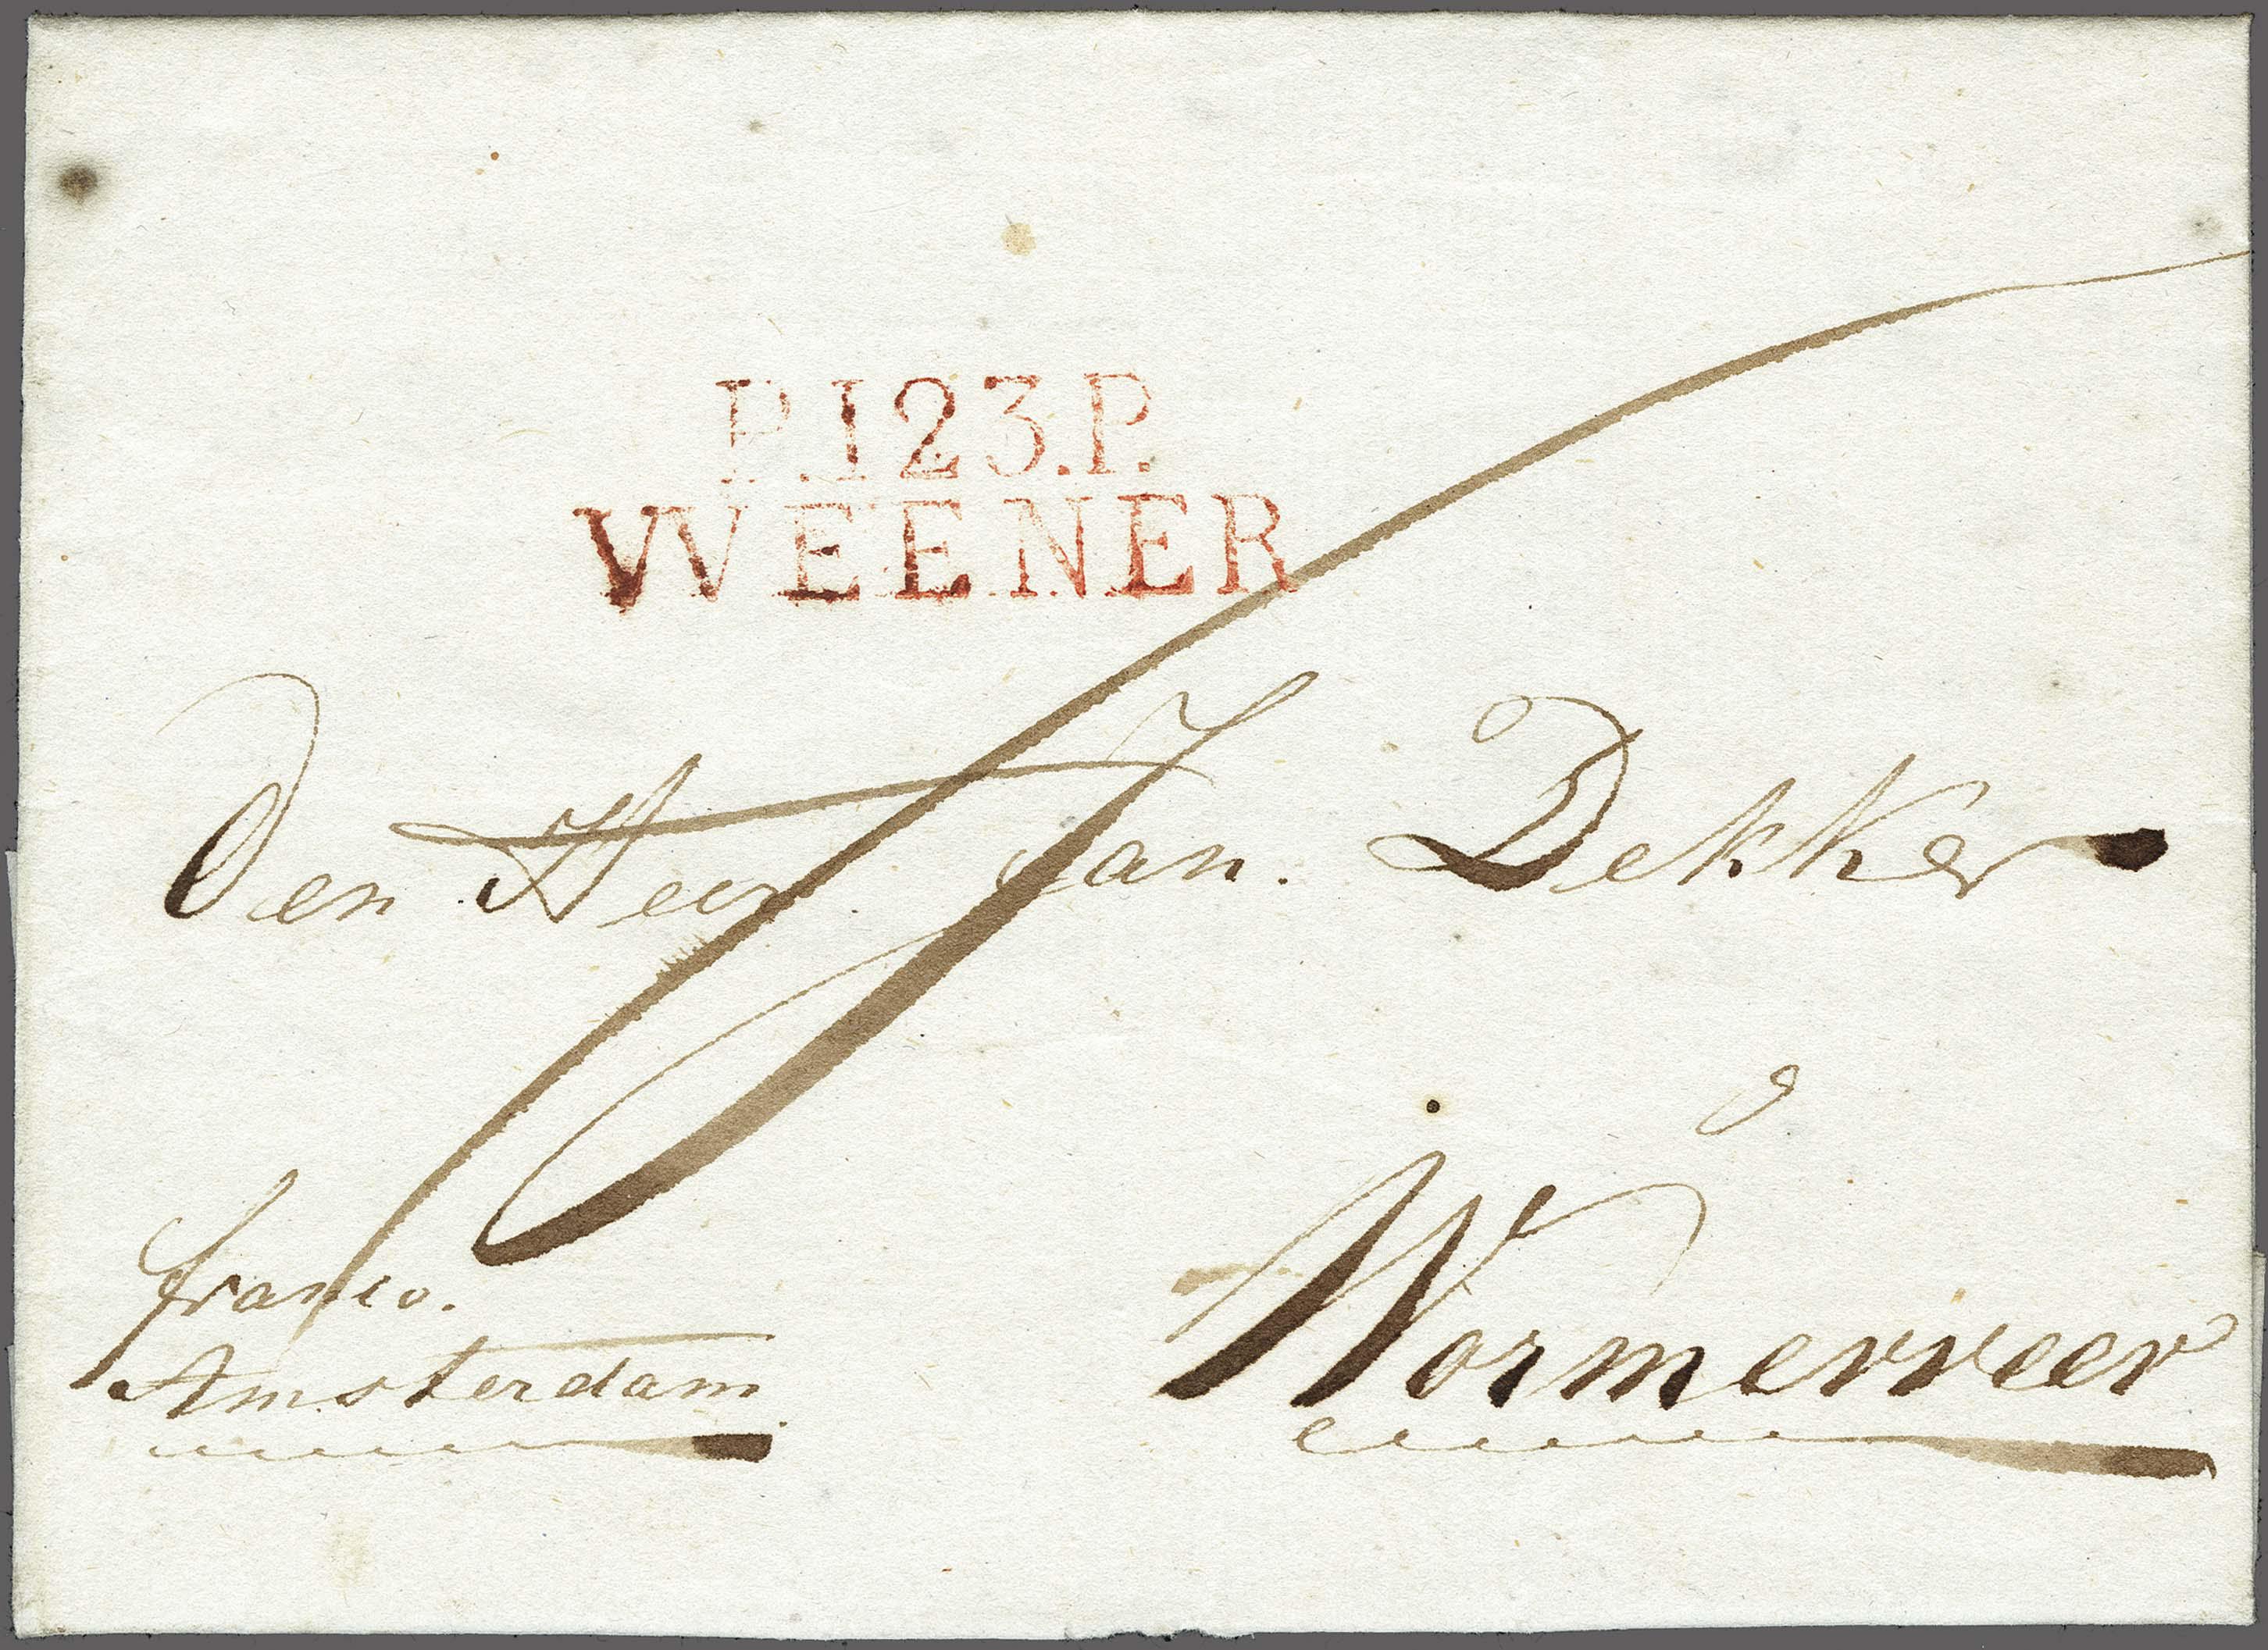 P.123.P.
WEENER
Den Heer Jan. Dekker
Franco.
Amsterdam
Wormerveer